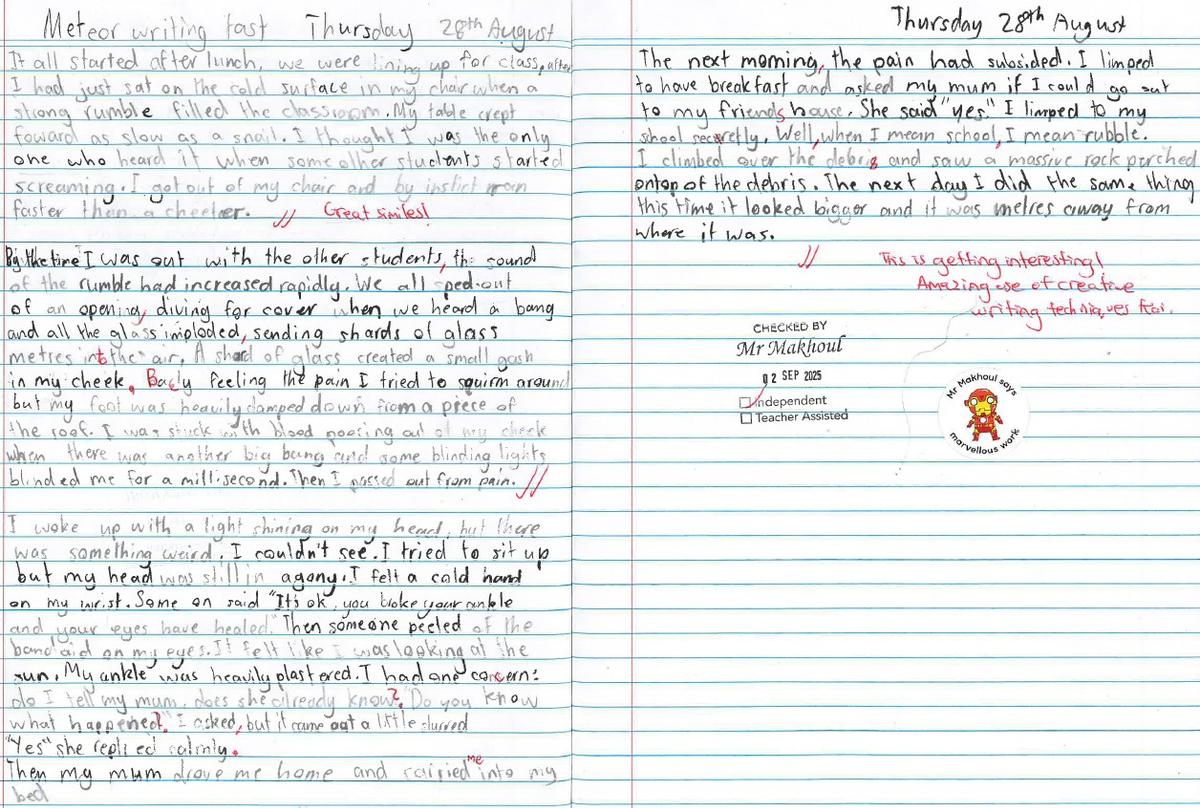 Meteor writing fast Thursday 28th August
It all started after lunch, we were lining up for class, after
I had just sat on the cold surface in my chair when a
strong rumble filled the classroom. My table crept
foward as slow as a snail. I thought I was the only
one who heard it when some other students started
screaming. I got out of my chair and by instict ran
faster than a cheeter.
Great similes!
By the time I was out with the other students, the sound
of the rumble had increased rapidly. We all sped out
of an opening, diving for cover when we heard a bang
and all the glass imploded, sending shards of glass
metres into the air. A shard of glass created a small gash
in my cheek. Badly feeling the pain I tried to squirm around
but my foot was heavily clamped down from a piece of
the roof. I was stuck with blood pooring out of my cheek
when there was another big bang and some blinding lights
blinded me for a millisecond. Then I passed out from pain.
I woke up with a light shining on my head, but there
was something weird. I couldn't see. I tried to sit up
but my head was still in agony. I felt a cold hand
on my wrist. Some on said "It's ok, you broke your ankle
and your eyes have healed." Then someone peeled of the
band aid on my eyes. It felt like I was looking at the
sun. My ankle was heavily plastered. I had one concern:
do I tell my mum, does she already know? "Do you know
what happened?" I asked, but it came out a little slurred
"Yes" she replied calmly.
Then my mum drove me home and carried me into my
bed
Thursday 28th August
The next morning, the pain had subsided. I limped
to have breakfast and asked my mum if I could go out
to my friends house. She said "yes." I limped to my
school secretly. Well, when I mean school, I mean rubble.
I climbed over the debris and saw a massive rock perched
ontop of the debris. The next day I did the same thing
this time it looked bigger and it was metres away from
where it was.
This is getting interesting!
Amazing use of creative
writing techniques
CHECKED BY
Mr Makhoul
02 SEP 2025
Independent
Teacher Assisted
Mr Makhoul says
marvellous work